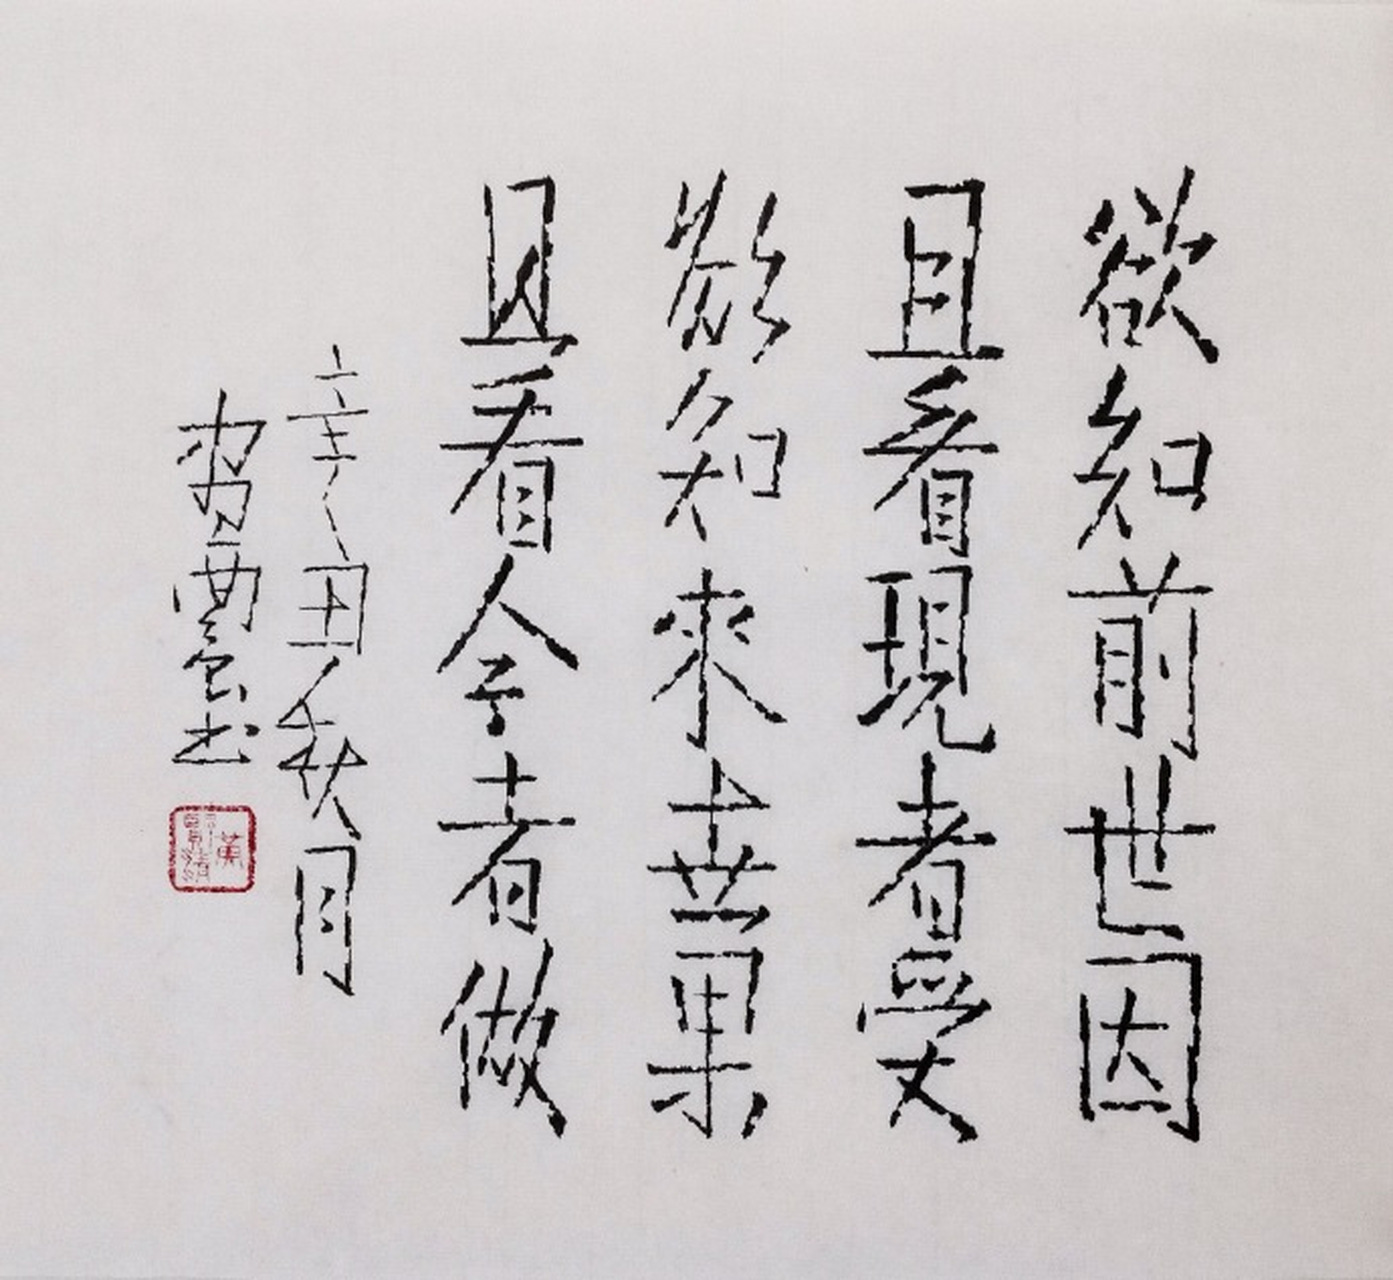 欲知前世因
且看現者受
欲知來世果
且看今者做
辛丑秋月
雲书
黃